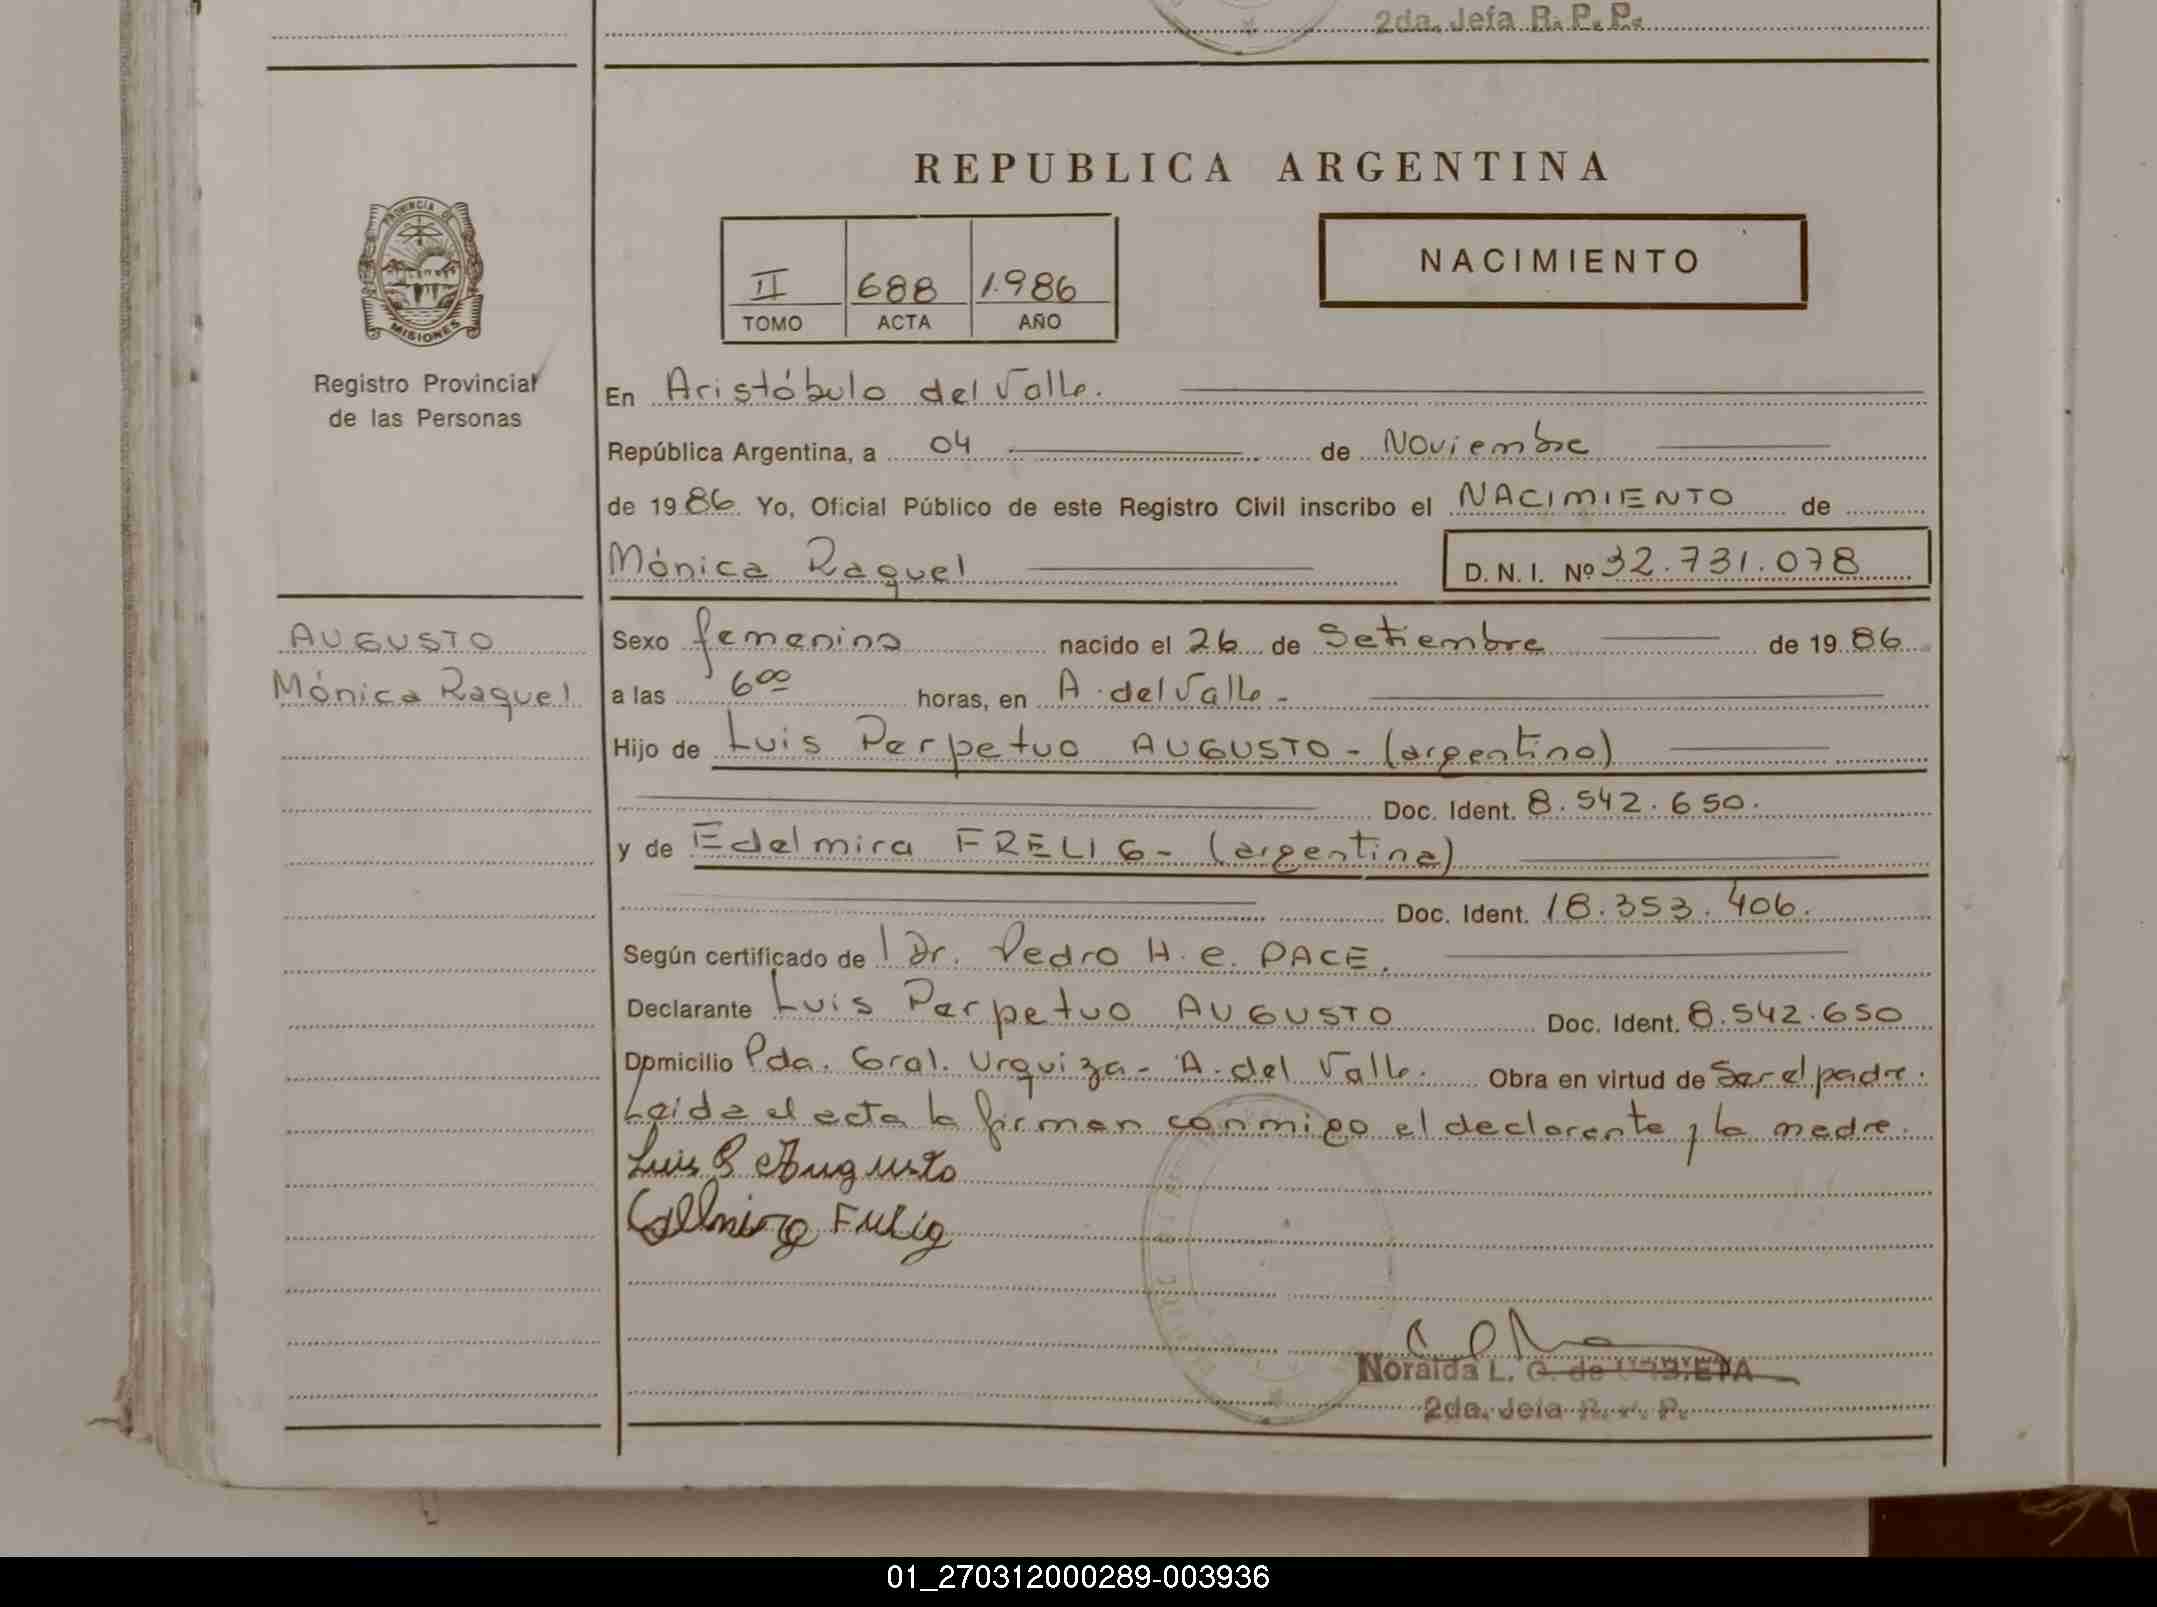 2da. Jefa R. P. P.
REPUBLICA ARGENTINA
NACIMIENTO
II 688 1.986
TOMO ACTA AÑO
PROVINCIA DE
MISIONES
Registro Provincial
de las Personas
En Aristóbulo del Valle.
República Argentina, a 04 de Noviembre
de 1986. Yo, Oficial Público de este Registro Civil inscribo el NACIMIENTO de
Mónica Raquel D. N. I. Nº 32.731.078
AUGUSTO
Mónica Raquel
Sexo femenino nacido el 26 de Setiembre de 1986
a las 6⁰⁰ horas, en A. del Valle -
Hijo de Luis Perpetuo AUGUSTO - (argentino)
Doc. Ident. 8.542.650.
y de Edelmira FRELIG - (argentina)
Doc. Ident. 18.353.406.
Según certificado de l Dr. Pedro H. e. PACE.
Declarante Luis Perpetuo AUGUSTO Doc. Ident. 8.542.650
Domicilio Pda. Gral. Urquiza - A. del Valle. Obra en virtud de Ser el padre.
Leida el acta la firman conmigo el declarante y la madre.
Luis P Augusto
Noralda L. G. de
2da. Jefa R. P. P.
01_270312000289-003936